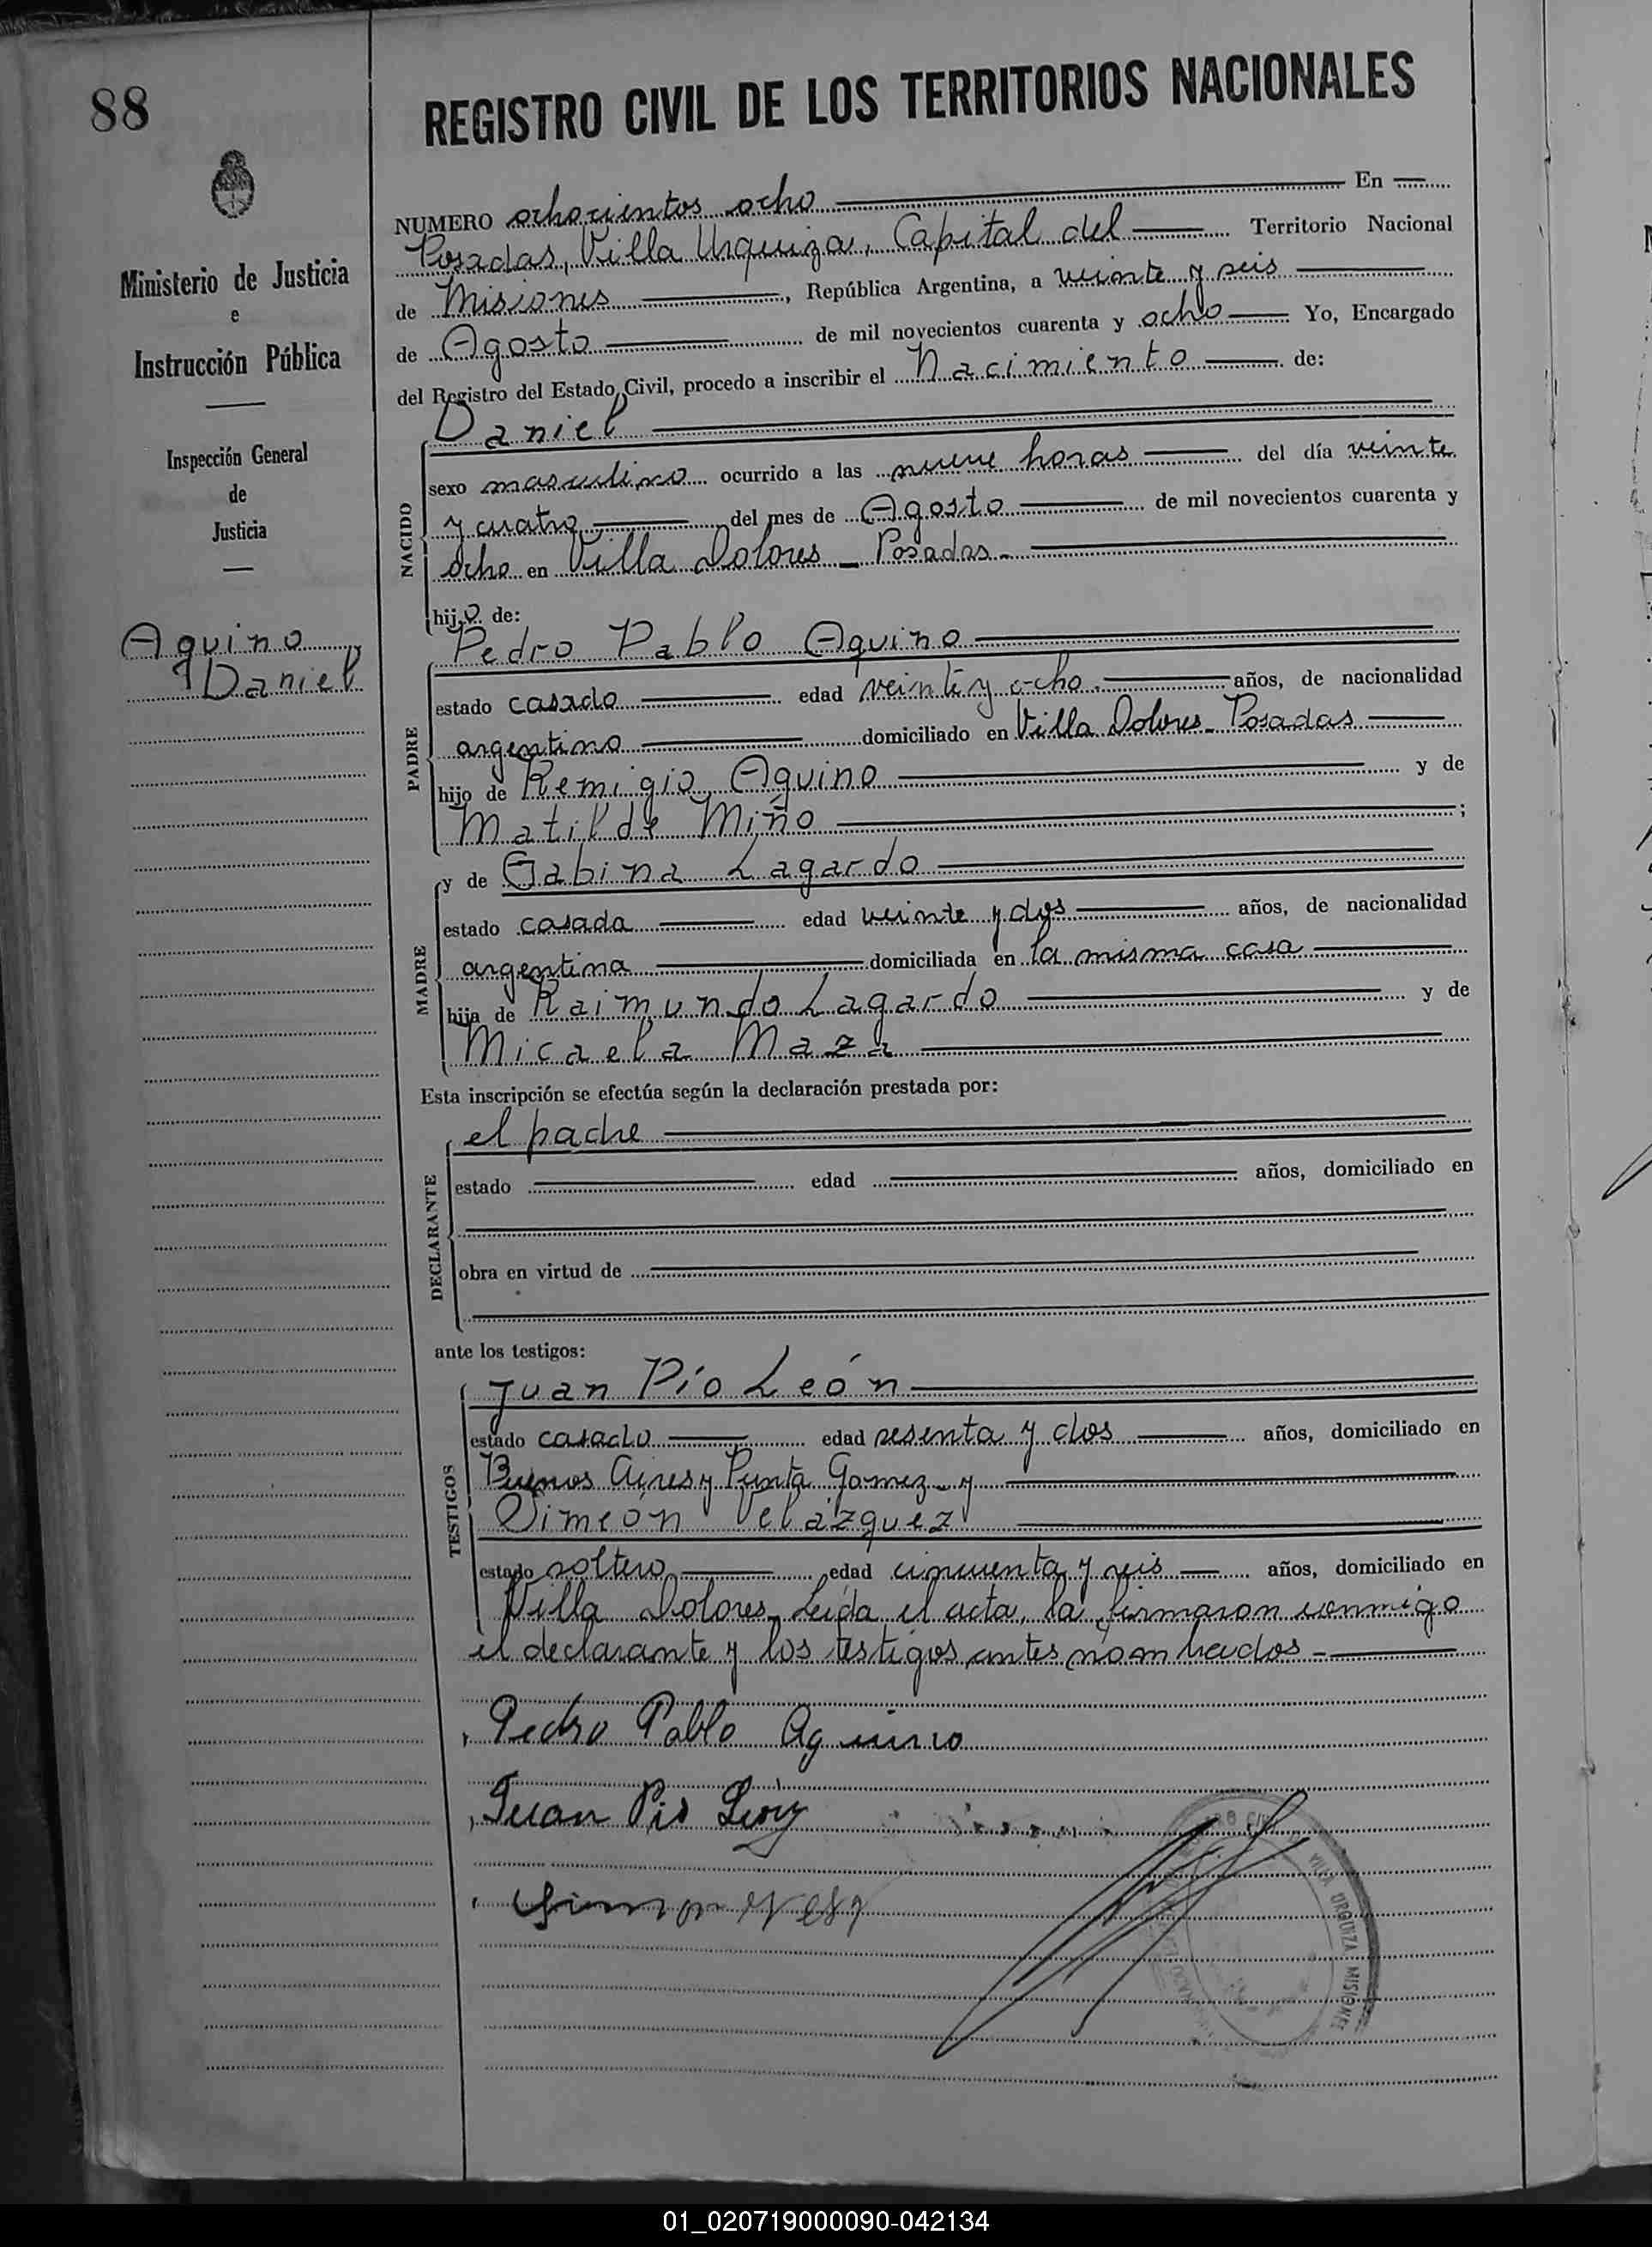 88
REGISTRO CIVIL DE LOS TERRITORIOS NACIONALES
Ministerio de Justicia
e
Instrucción Pública
Inspección General
de
Justicia
Aquino
Daniel
NUMERO ochocientos ocho En
Posadas, Villa Urquiza, Capital del Territorio Nacional
de Misiones, República Argentina, a veinte y seis
de Agosto de mil novecientos cuarenta y ocho Yo, Encargado
del Registro del Estado Civil, procedo a inscribir el Nacimiento de:
NACIDO
Daniel
sexo masculino ocurrido a las nueve horas del día veinte
y cuatro del mes de Agosto de mil novecientos cuarenta y
ocho en Villa Dolores - Posadas -
hijo de:
PADRE
Pedro Pablo Aquino
estado casado edad veinte y ocho años, de nacionalidad
argentino domiciliado en Villa Dolores - Posadas
hijo de Remigio Aquino y de
Matilde Miño ;
MADRE
y de Gabina Lagardo
estado casada edad veinte y dos años, de nacionalidad
argentina domiciliada en la misma casa
hija de Raimundo Lagardo y de
Micaela Maza
Esta inscripción se efectúa según la declaración prestada por:
DECLARANTE
el padre
estado edad años, domiciliado en
obra en virtud de
ante los testigos:
TESTIGOS
Juan Pío León
estado casado edad sesenta y dos años, domiciliado en
Buenos Aires y Punta Gomez - y
Simeón Velázquez
estado soltero edad cincuenta y seis años, domiciliado en
Villa Dolores - Leída el acta, la firmaron conmigo
el declarante y los testigos antes nombrados -
Pedro Pablo Aquino
Juan Pio León
VILLA URQUIZA MISIONES
01_020719000090-042134